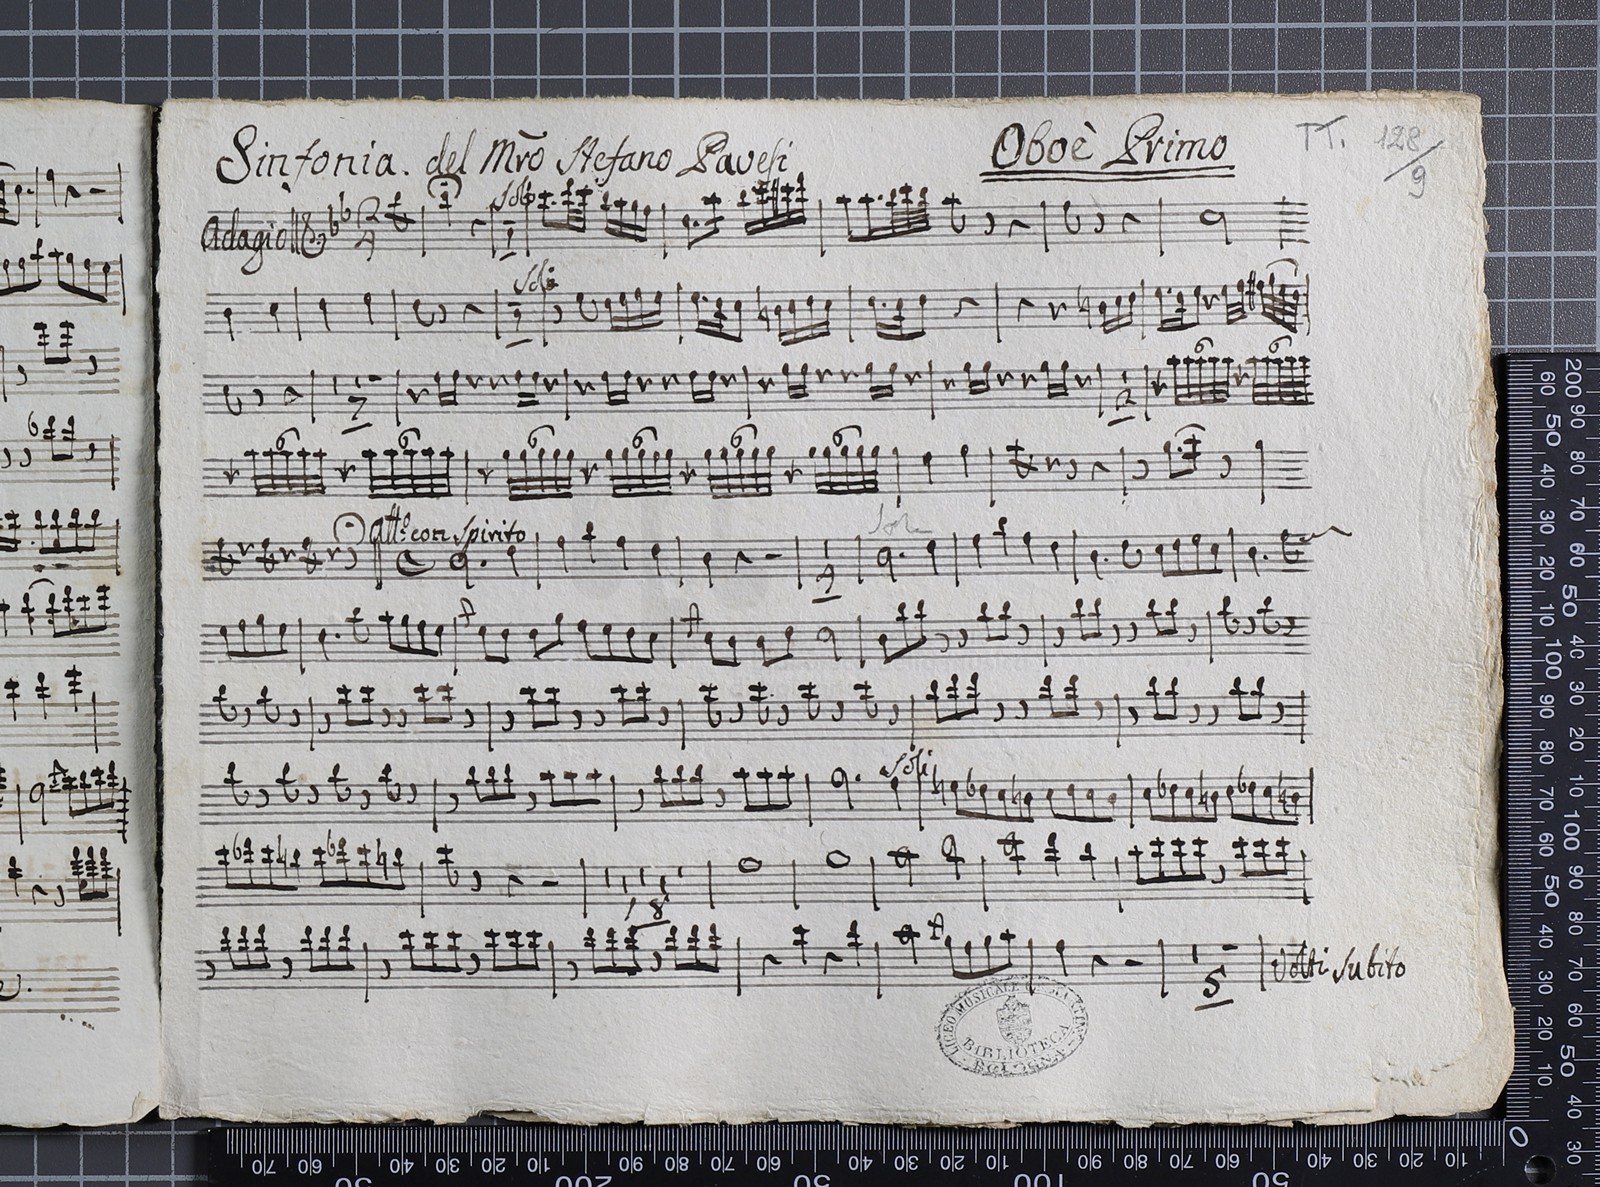 Sinfonia. del Mro Stefano Pavesi
Oboè Primo
TT. 128/9
Adagio
2/4
Solo
1
Soli
1
7
2
6
6
6
6
6
6
6
6
All.o con Spirito
4
Solo
Soli
18
5
Volti Subito
LICEO MUSICALE
BIBLIOTECA
BOLOGNA